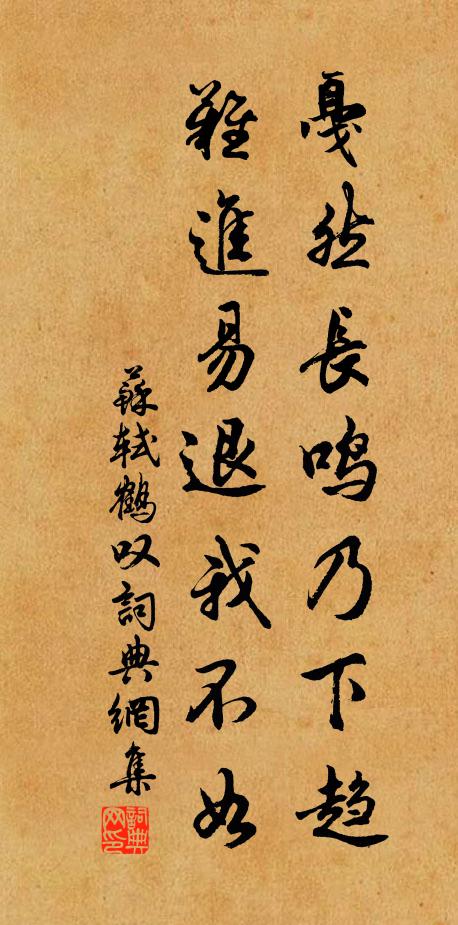 戛然長鳴乃下趨
難進易退我不如
蘇軾鶴叹詞典網集
詞典网印